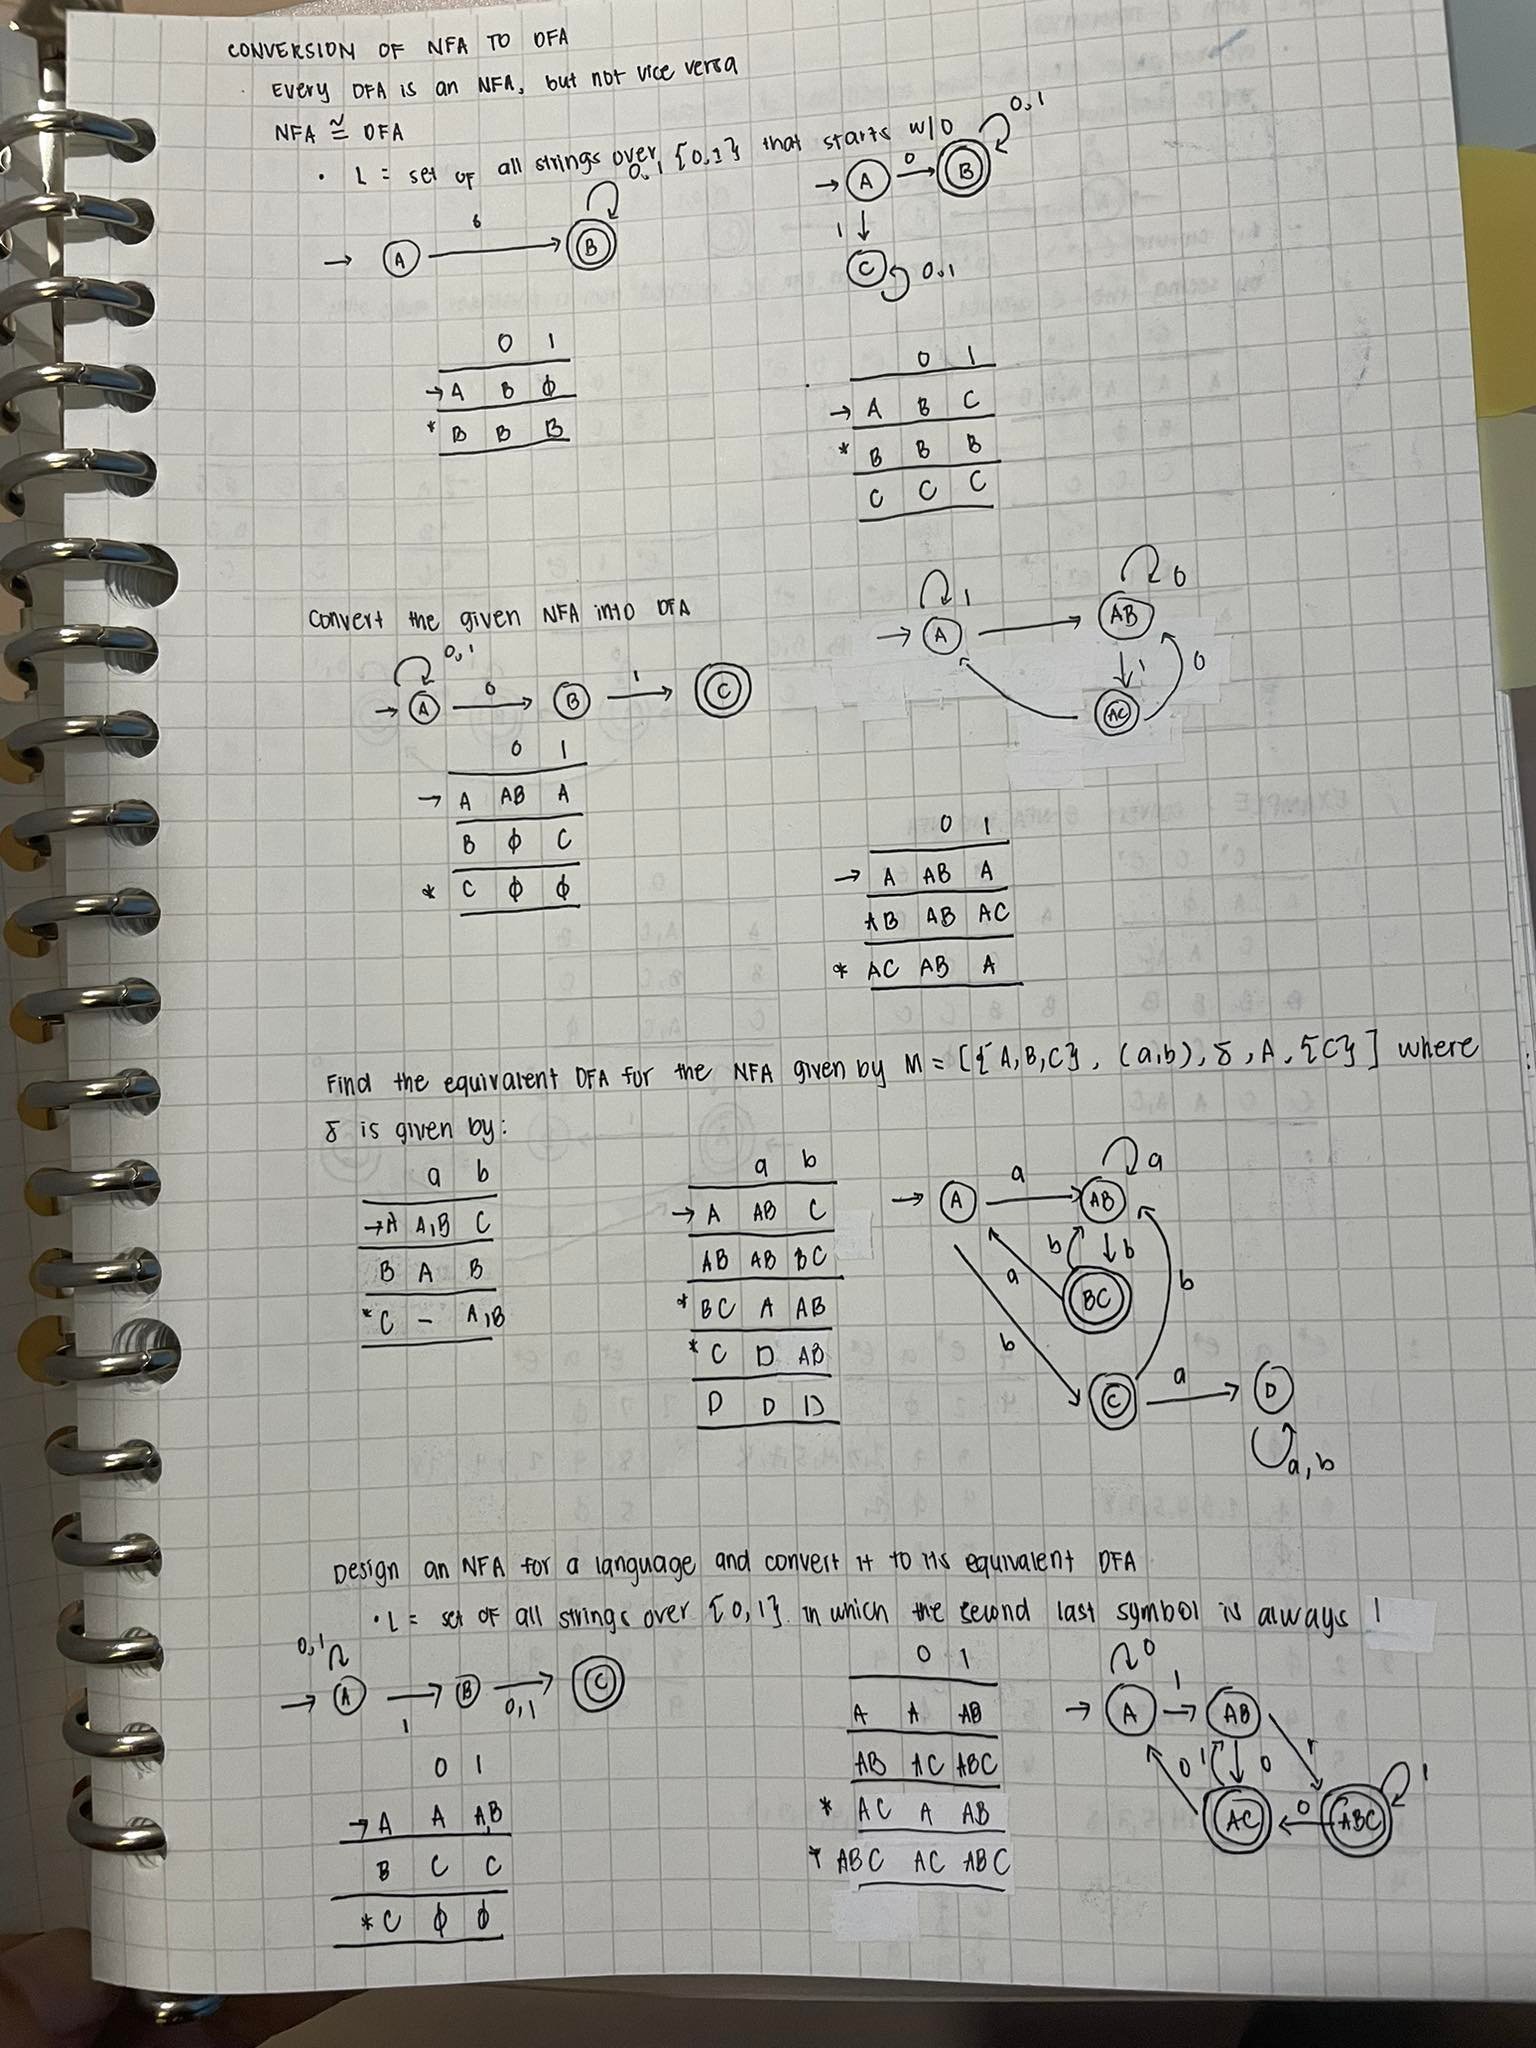 CONVERSION OF NFA TO DFA
Every DFA is an NFA, but not vice versa
NFA ≅ DFA
• L = set of all strings over {0,1} that starts w/0
0,1
→ A 0 B
0,1
→ A 0 B
1
C 0,1
0 1
→ A B ϕ
* B B B
0 1
→ A B C
* B B B
C C C
Convert the given NFA into DFA
0,1
→ A 0 B 1 C
0 1
→ A AB A
B ϕ C
* C ϕ ϕ
1 0
→ A AB
1 0
AC
0 1
→ A AB A
AB AB AC
* AC AB A
Find the equivalent DFA for the NFA given by M = [{A,B,C}, (a,b), δ, A, {C}] where
δ is given by:
a b
→A A,B C
B A B
*C – A,B
a b
→ A AB C
AB AB BC
* BC A AB
* C D AB
D D D
a
→ A a AB
b b
a BC b
b
C a D
a, b
Design an NFA for a language and convert it to its equivalent DFA
• L = set of all strings over {0,1} in which the second last symbol is always 1
0,1
→ A 1 B 0,1 C
0 1
→ A A A,B
B C C
* C ϕ ϕ
0 1
A A AB
AB AC ABC
* AC A AB
* ABC AC ABC
0
→ A 1 AB
0 1 0 1 1
AC 0 ABC